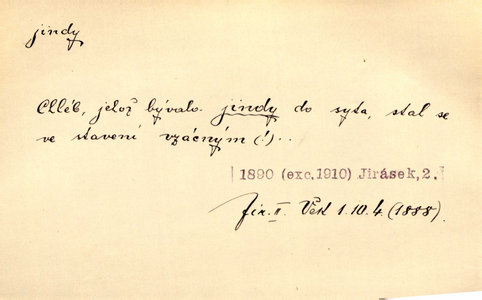 jindy
Chléb, jehož bývalo jindy do syta, stal se
ve stavení vzácným (!)..
1890 (exc.1910) Jirásek,2.
Jir. II. Věk 1.10.4. (1888).